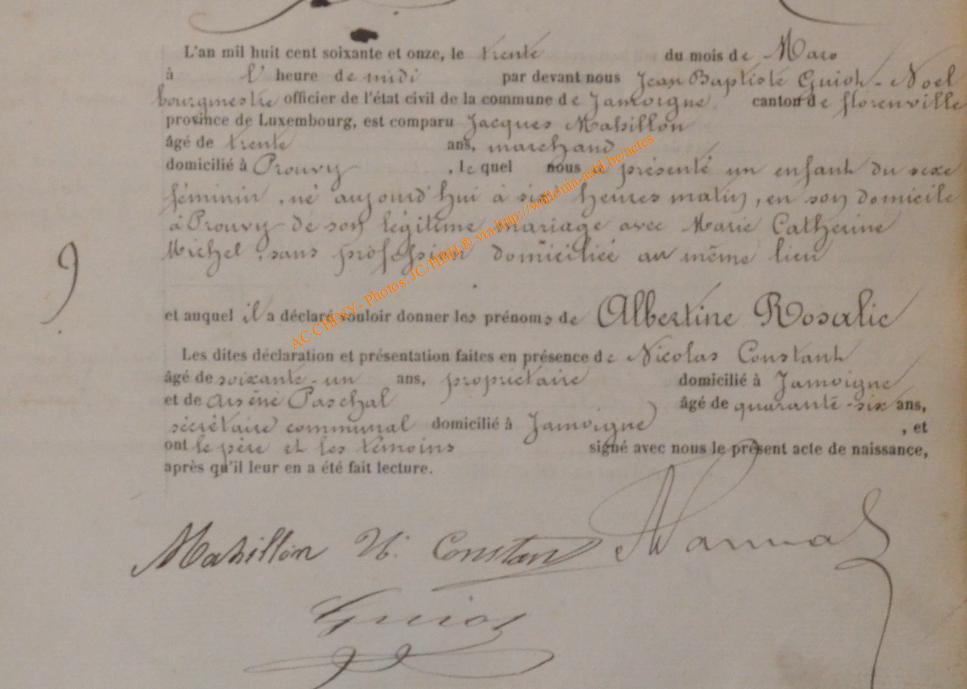 L'an mil huit cent soixante et onze, le trente du mois de Mars
à l' heure de midi par devant nous Jean Baptiste Guiot-Noel
bourgmestre officier de l'état civil de la commune de Jamoigne canton de florenville
province de Luxembourg, est comparu Jacques Mahillon
âgé de trente ans, marchand
domicilié à Prouvy , lequel nous a présenté un enfant du sexe
féminin, né aujourd'hui à six heures matin, en son domicile
à Prouvy de son légitime mariage avec Marie Catherine
Michel, sans profession domiciliée au même lieu
et auquel il a déclaré vouloir donner les prénoms de Albertine Rosalie
Les dites déclaration et présentation faites en présence de Nicolas Constant
âgé de soixante-un ans, propriétaire domicilié à Jamoigne
et de Arsène Paschal âgé de quarante-six ans,
secrétaire communal domicilié à Jamoigne , et
ont le père et les témoins signé avec nous le présent acte de naissance,
après qu'il leur en a été fait lecture.
Mahillon N. Constant
Guiot
AC CHINY - Photos: JC HBM ® via http://